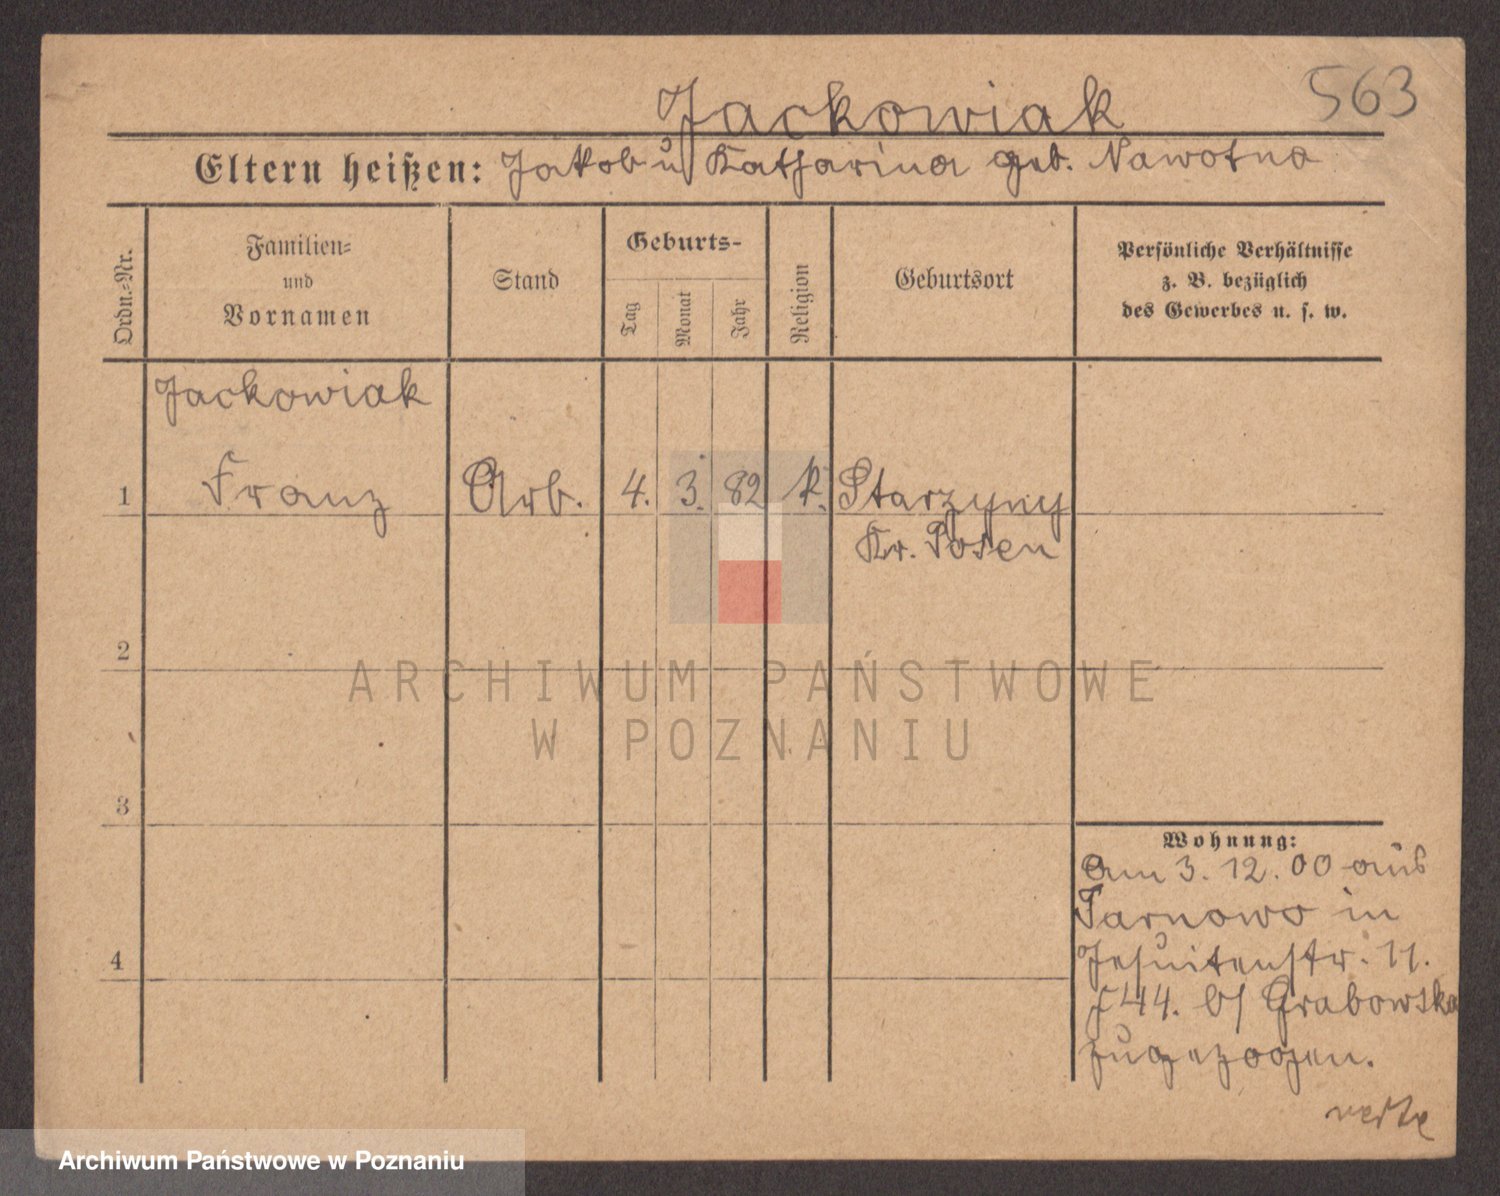 563
Jackowiak
Eltern heißen: Jakob u Katharina geb. Nawotna
Ordn.-Nr.
Familien- und Vornamen
Stand
Geburts-
Tag
Monat
Jahr
Religion
Geburtsort
Persönliche Verhältnisse
z. B. bezüglich
des Gewerbes u. s. w.
Jackowiak
1 Franz Arb. 4. 3. 82 k. Starzyny
Kr. Posen
2
ARCHIWUM PAŃSTWOWE
W POZNANIU
3
Wohnung:
Am 3. 12. 00 aus
Tarnowo in
4
Jesuitenstr. 11.
44. b/ Grabowska
zugezogen.
verte
Archiwum Państwowe w Poznaniu